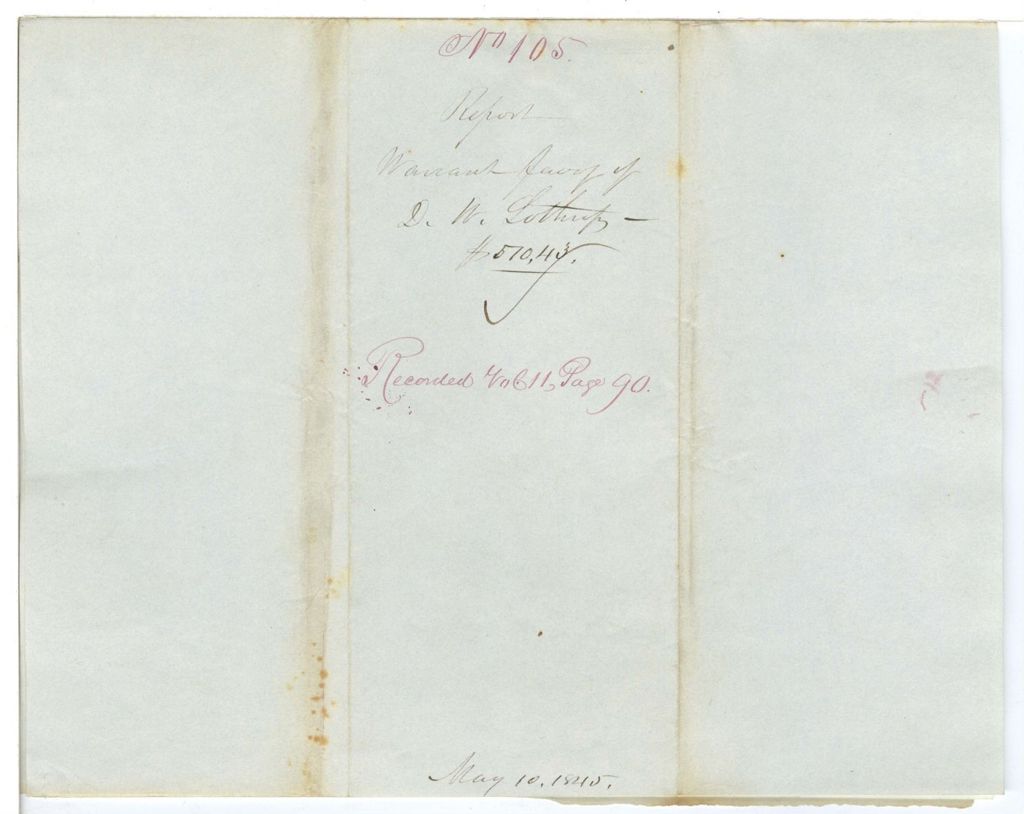 No 105.
Report
Warrant favor of
D. W. Lothrop —
$510,43.
Recorded Vol 11, Page 90.
May 10, 1845.